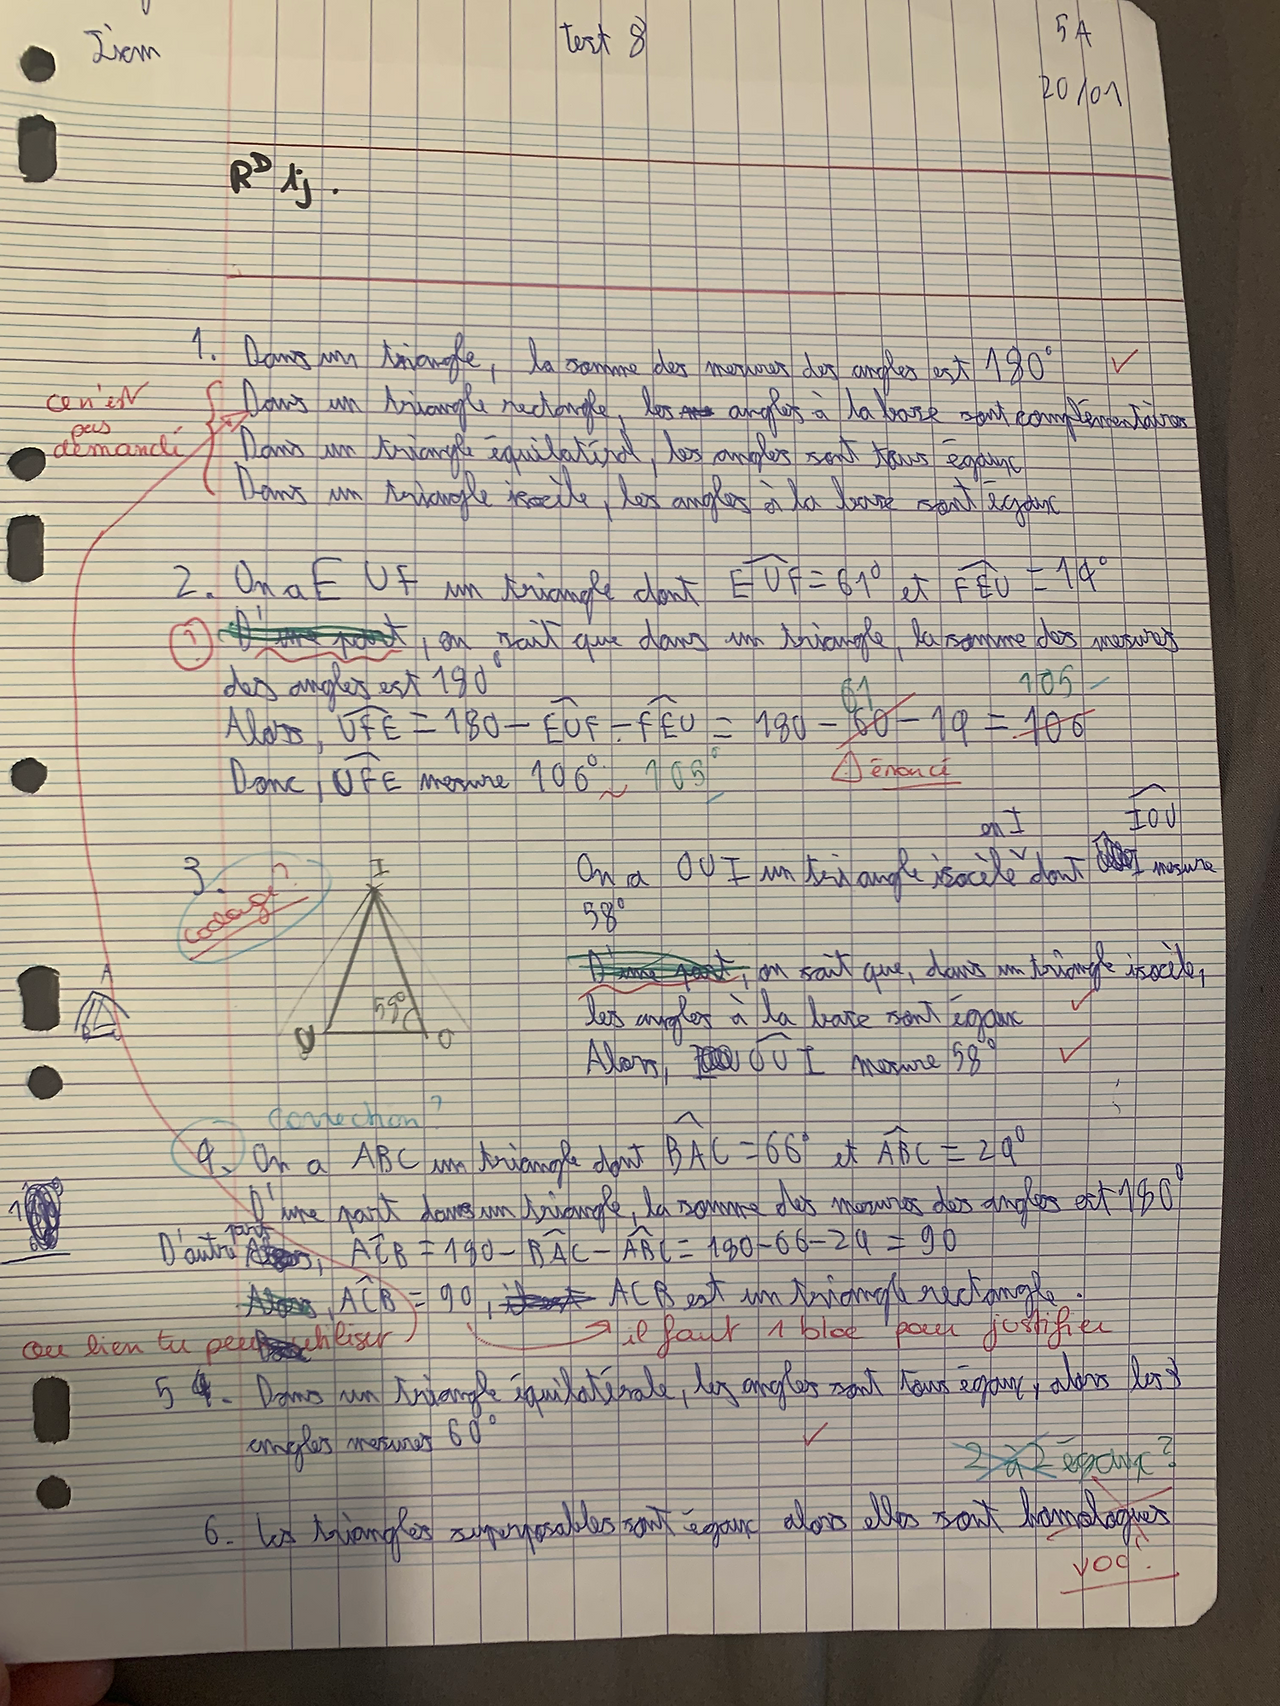 Irem
Test 8
5A
20/01
RD lj.
1. Dans un triangle, la somme des mesures des angles est 180° ✓
ce n'est pas demandé
Dans un triangle rectangle, les angles à la base sont complémentaires
Dans un triangle équilatéral, les angles sont tous égaux
Dans un triangle isocèle, les angles à la base sont égaux
2. On a EUF un triangle dont EUF = 61° et FEU = 14°
? D'une part, on sait que dans un triangle, la somme des mesures
des angles est 180°
61 105
Alors, UFE = 180 - EUF - FEU = 180 - 60 - 14 = 106
Donc, UFE mesure 106° 105°
⚠ énoncé
3.
codage?
I
58°
U O
en I IOU
On a OUI un triangle isocèle dont mesure
58°
D'une part, on sait que, dans un triangle isocèle,
les angles à la base sont égaux ✓
Alors, OUI mesure 58° ✓
A
correction?
4. On a ABC un triangle dont BAC = 66° et ABC = 24°
D'une part dans un triangle, la somme des mesures des angles est 180°
D'autre part, ACB = 180 - BAC - ABC = 180 - 66 - 24 = 90
ACB = 90, ACB est un triangle rectangle.
ou bien tu peux utiliser
il faut 1 bloc pour justifier
5. Dans un triangle équilatérale, les angles sont tous égaux, alors les
angles mesures 60° ✓
2 à 2 égaux?
6. Les triangles superposables sont égaux alors elles sont homologues
voc.